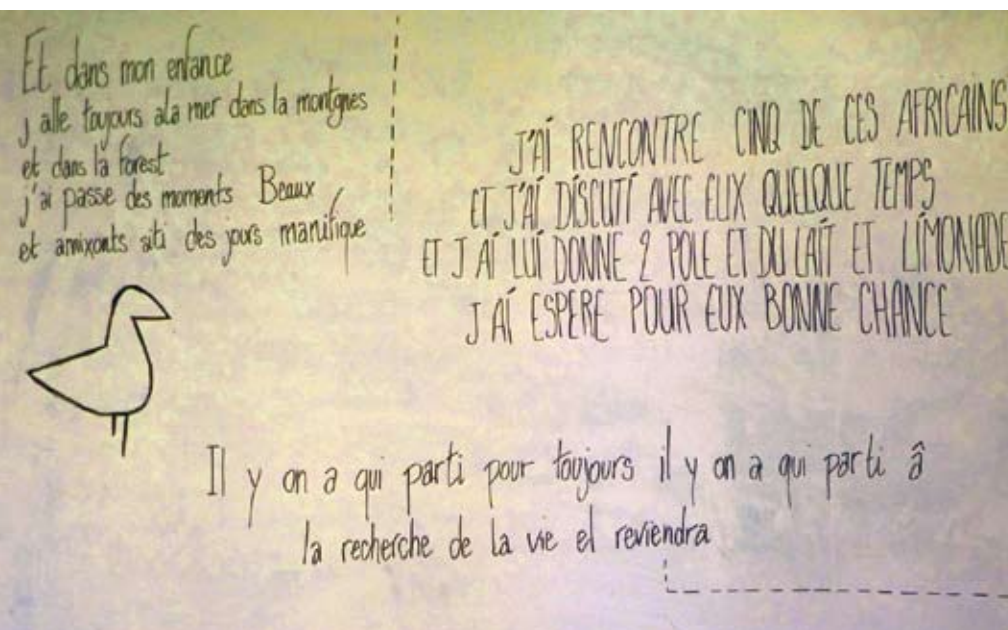 Et dans mon enfance
j alle toujours ala mer dans la montgnes
et dans la forest
j'ai passe des moments Beaux
et amixants siti des jours manufique
J'AI RENCONTRE CINQ DE CES AFRICAINS
ET J'AI DISCUTI AVEC EUX QUELQUE TEMPS
ET J AI LUI DONNE 2 POLE ET DU LAIT ET LIMONADE
J AI ESPERE POUR EUX BONNE CHANCE
Il y on a qui parti pour toujours il y on a qui parti â
la recherche de la vie el reviendra